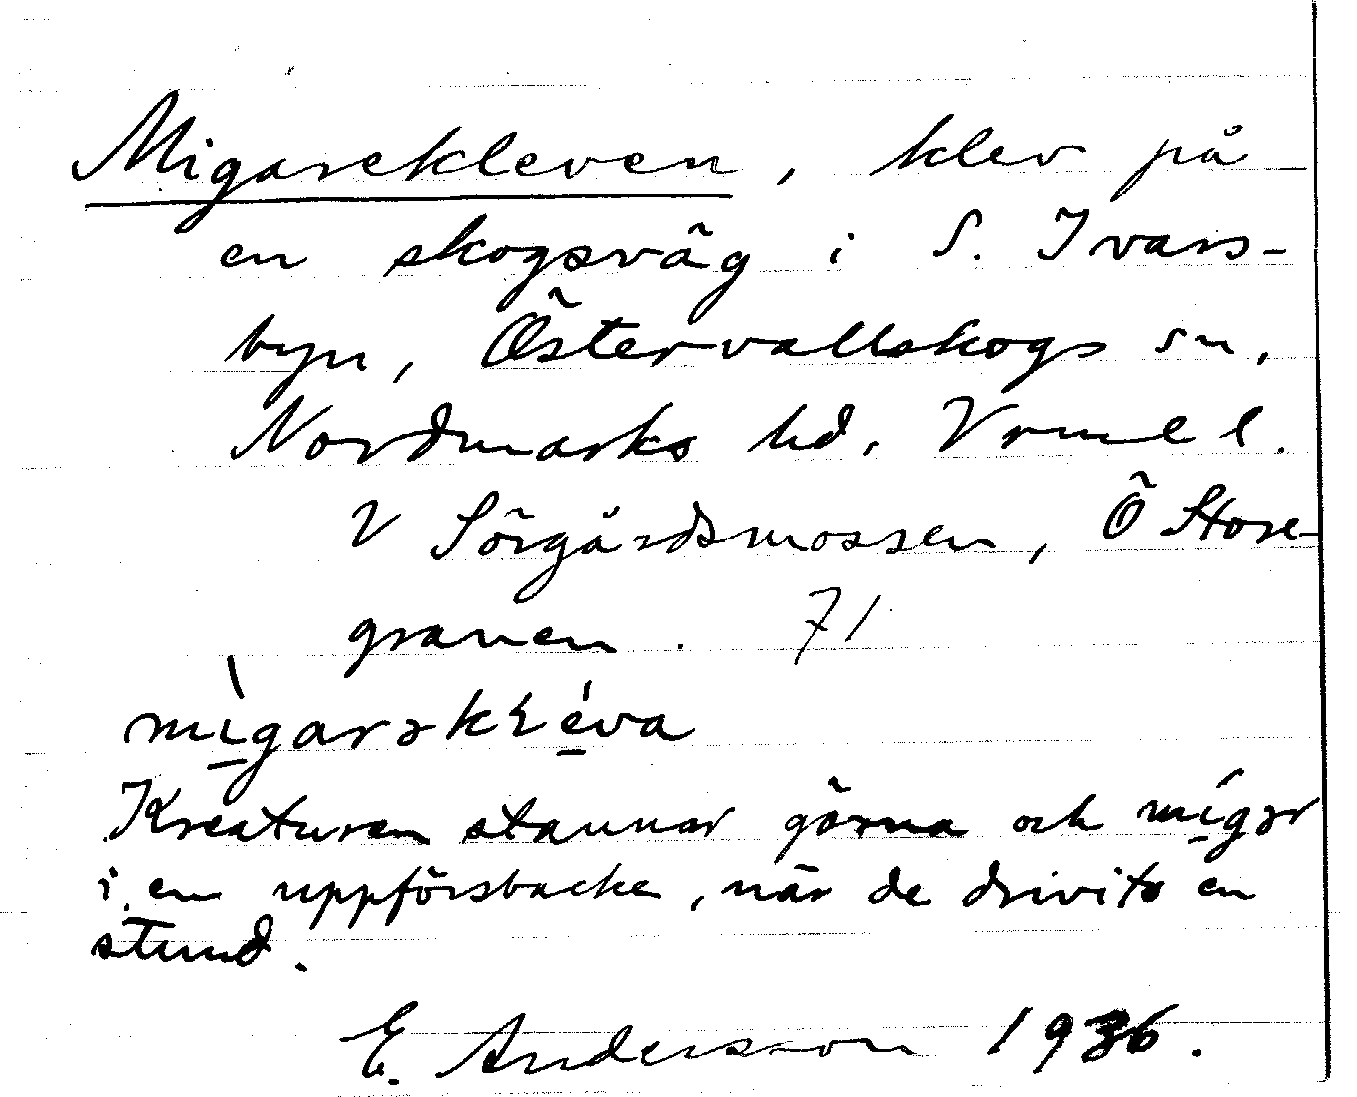 Migarekleven, klev på
en skogsväg i S. Ivars-
byn, Östervallskogs sn,
Nordmarks hd, Vrml l.
V Sörgårdsmossen, Ö Store-
granen. 71
mìgarəkléva
Kreaturen stannar gärna och mígər
i en uppförsbacke, när de drivits en
stund.
E. Andersson 1936.